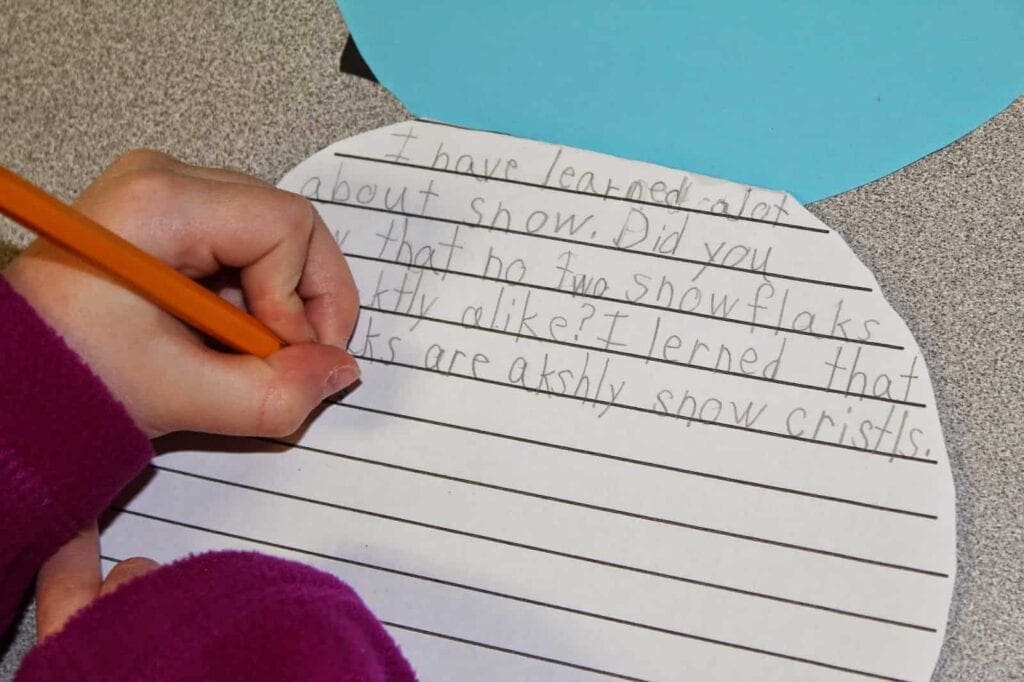 I have learned alot
about snow. Did you
that no two snowflaks
alike? I lerned that
are akshly snow cristls.